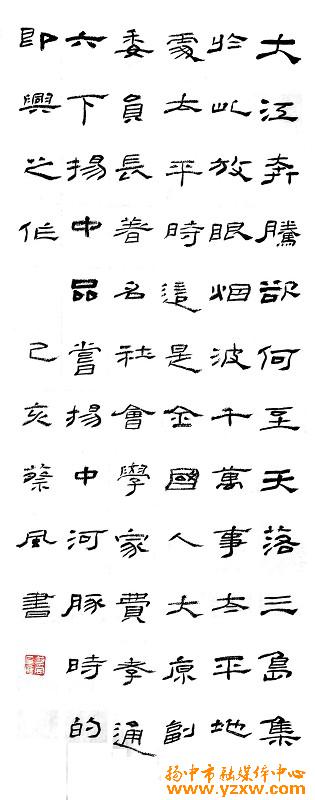 大江奔騰欲何至天落三島集
於此放眼烟波千萬事太平地
處去平時這是全國人大原副
委員長著名社會學家費孝通
六下揚中品嘗揚中河豚時的
即興之作 己亥蔡風書
扬中市融媒体中心
www.yzxw.cn